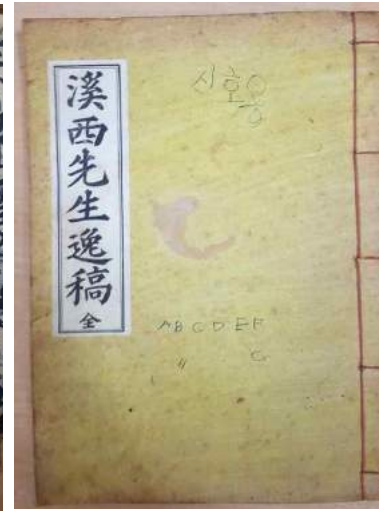 溪西先生逸稿 全
시호용
ABCDEF
〃 G